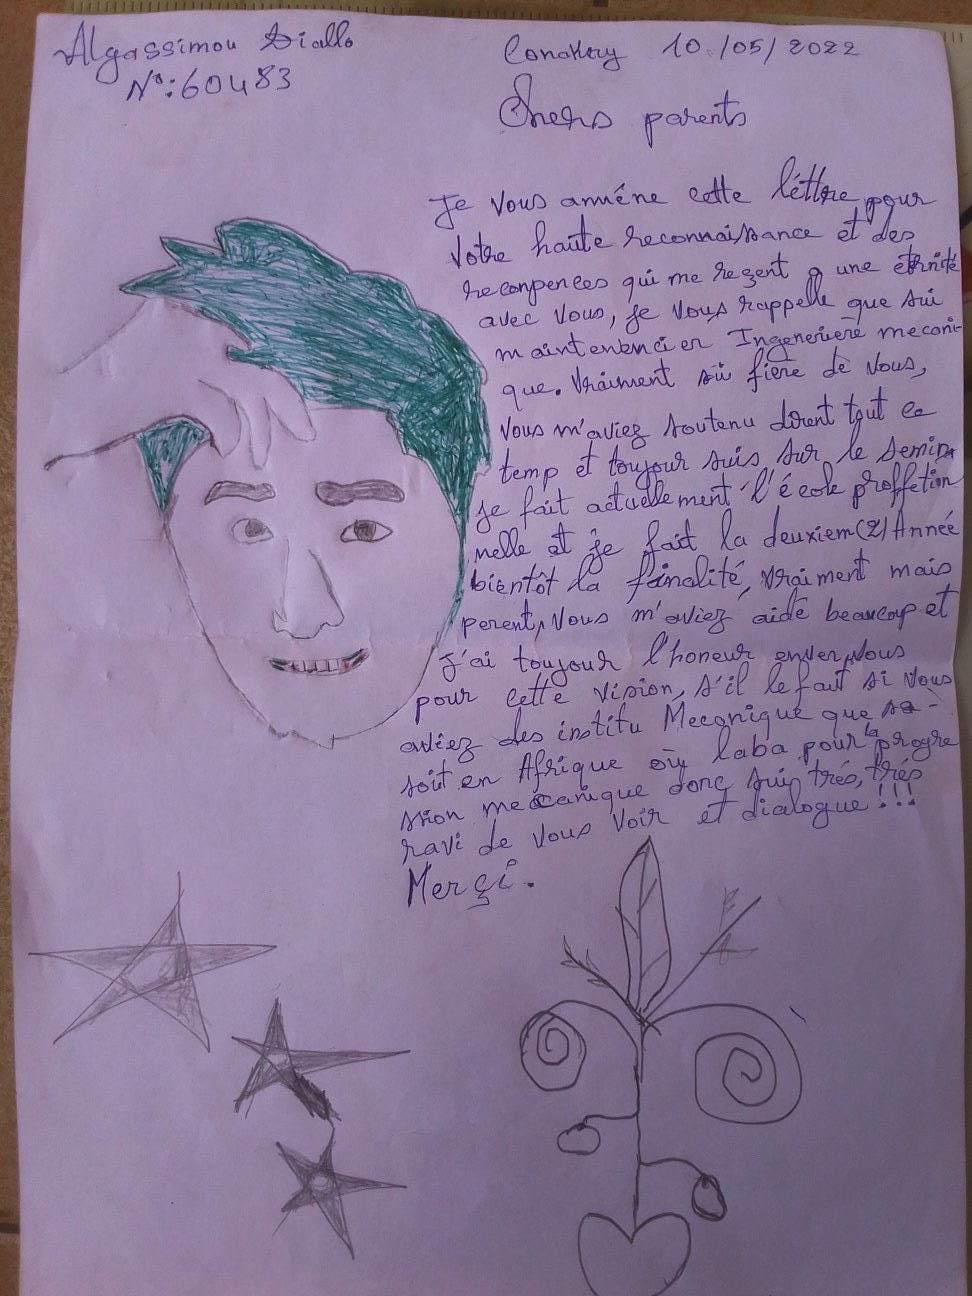 Algassimou Diallo
N°: 60483
Conakry 10/05/2022
Chers parents
Je vous annéne cette léttre pour
Votre haute reconnaissance et des
reconpences qui me regent a une étrnité
avec vous, je vous rappelle que sui
maintenbncier Ingenerieré mecani-
que. Vraiment sui fiere de vous,
Vous m'aviez soutenu dirent tout ce
temp et toujour suis sur le semin
je fait actuellement l'école proffetion
nelle et je fait la deuxiem (2) Année
bientôt la finalité, vraiment mais
perent, vous m'aviez aidé beaucoup et
j'ai toujour l'honeur enver vous
pour cette vision, s'il le fait si vous
aviez des institu Mecanique que sa-
soit en Afrique où laba pour la progre
ssion mecanique donc suis trés, trés
ravi de vous voir et dialogue!!!
Merçi.